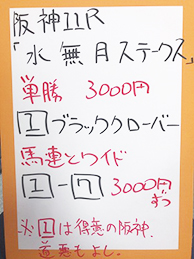 阪神11R
「水無月ステークス」
単勝 3000円
1 ブラッククローバー
馬連とワイド
1-7 3000円
ずつ
※1は得意の阪神.
道悪もよし。